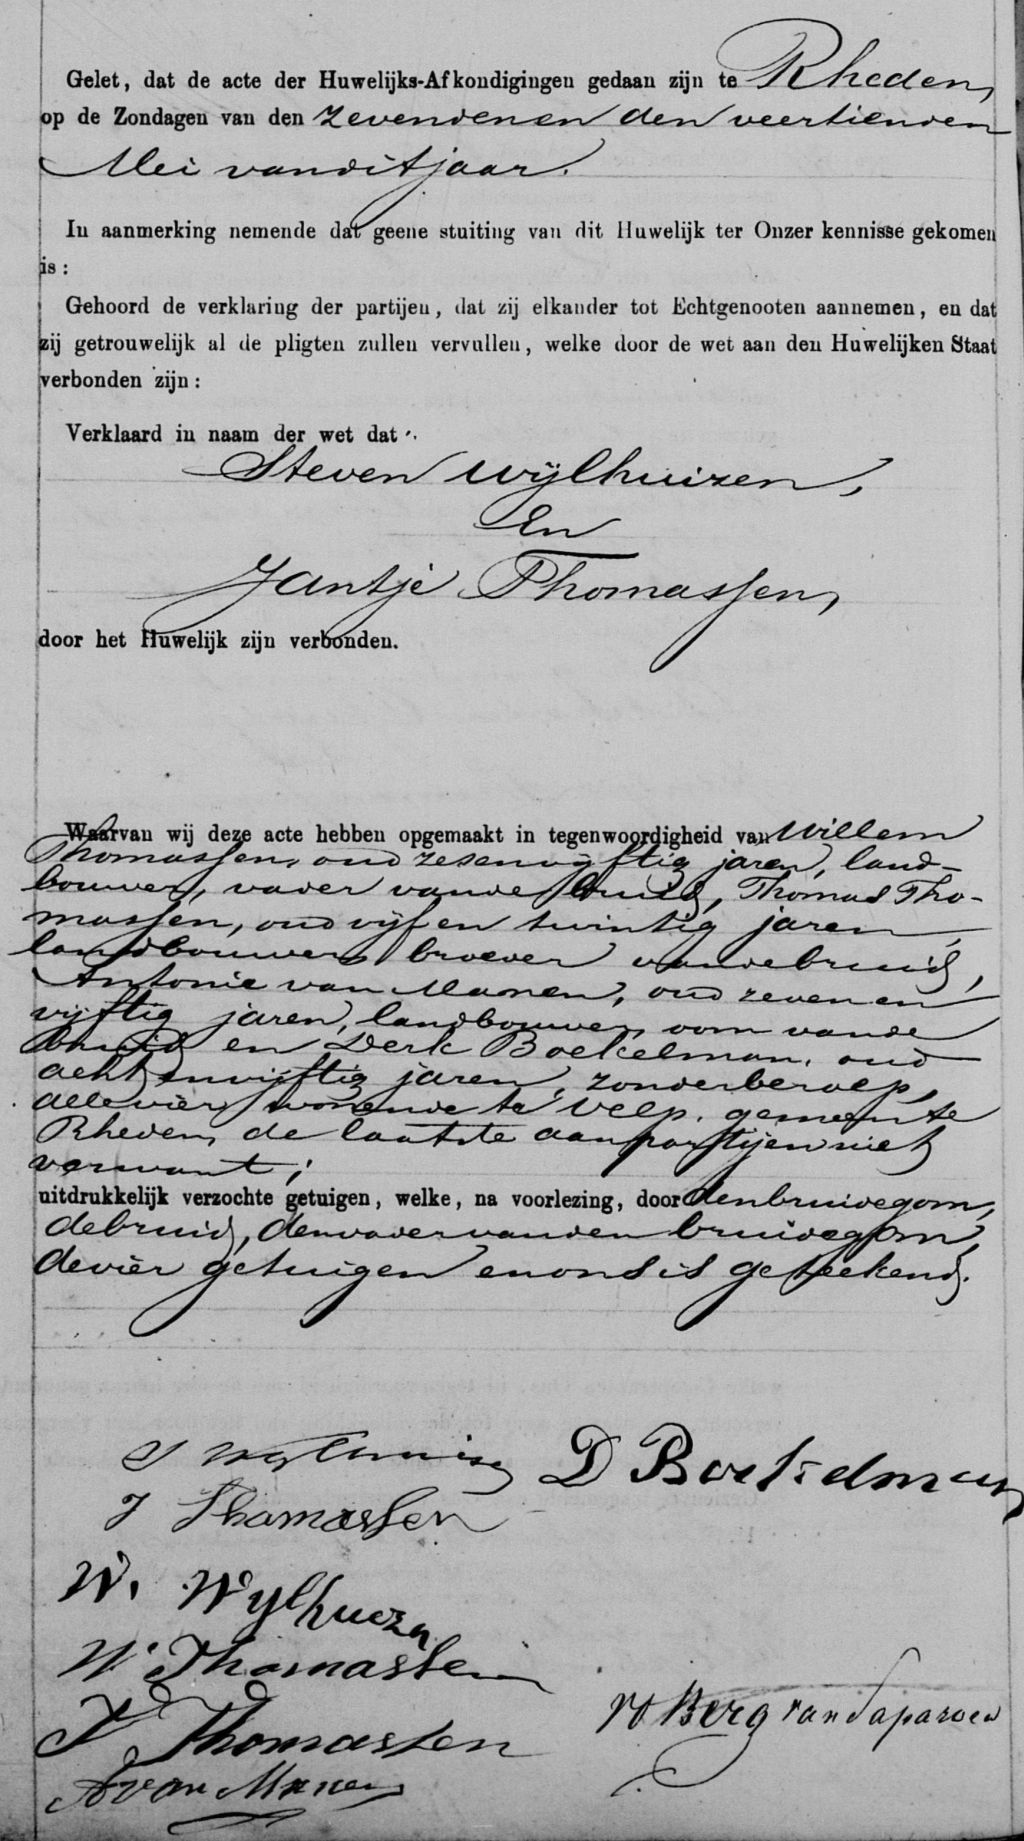 Gelet, dat de acte der Huwelijks-Afkondigingen gedaan zijn te Rheden,
op de Zondagen van den zevenden en den veertienden
Mei van dit jaar.
In aanmerking nemende dat geene stuiting van dit Huwelijk ter Onzer kennisse gekomen
is:
Gehoord de verklaring der partijen, dat zij elkander tot Echtgenooten aannemen, en dat
zij getrouwelijk al de pligten zullen vervullen, welke door de wet aan den Huwelijken Staat
verbonden zijn:
Verklaard in naam der wet dat:
Steven Wijlhuizen,
En
Jantje Thomassen,
door het Huwelijk zijn verbonden.
Waarvan wij deze acte hebben opgemaakt in tegenwoordigheid van Willem
Thomassen, oud zesenvijftig jaren, land-
bouwer, vader van de bruid, Thomas Tho-
massen, oud vijf en twintig jaren,
landbouwer, broeder van de bruid,
Antonie van Manen, oud zeven en
vijftig jaren, landbouwer, oom van de
bruid en Derk Boekelman, oud
acht en vijftig jaren, zonder beroep,
alle vier wonende te Velp, gemeente
Rheden, de laatste aan partijen niet
verwant;
uitdrukkelijk verzochte getuigen, welke, na voorlezing, door den bruidegom,
de bruid, den vader van den bruidegom,
de vier getuigen en ons is geteekend.
S Wylhuizen D Boekelman
J Thomassen
W. Wylhuezn
W Thomassen
T Thomassen Berg van Saparoea
A van Manen